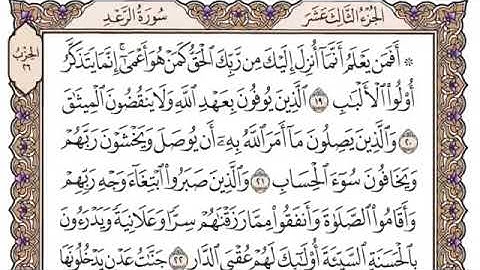 الجزء الثالث عشر
سورة الرعد
الحزب
٢٦
* أَفَمَن يَعْلَمُ أَنَّمَا أُنزِلَ إِلَيْكَ مِن رَّبِّكَ الْحَقُّ كَمَنْ هُوَ أَعْمَىٰٓ إِنَّمَا يَتَذَكَّرُ
أُوْلُواْ الْأَلْبَٰبِ ١٩ الَّذِينَ يُوفُونَ بِعَهْدِ اللَّهِ وَلَا يَنقُضُونَ الْمِيثَٰقَ
٢٠ وَالَّذِينَ يَصِلُونَ مَا أَمَرَ اللَّهُ بِهِۦٓ أَن يُوصَلَ وَيَخْشَوْنَ رَبَّهُمْ
وَيَخَافُونَ سُوٓءَ الْحِسَابِ ٢١ وَالَّذِينَ صَبَرُواْ ابْتِغَآءَ وَجْهِ رَبِّهِمْ
وَأَقَامُواْ الصَّلَوٰةَ وَأَنفَقُواْ مِمَّا رَزَقْنَٰهُمْ سِرًّا وَعَلَانِيَةً وَيَدْرَءُونَ
بِالْحَسَنَةِ السَّيِّئَةَ أُوْلَٰٓئِكَ لَهُمْ عُقْبَى الدَّارِ ٢٢ جَنَّٰتُ عَدْنٍ يَدْخُلُونَهَا